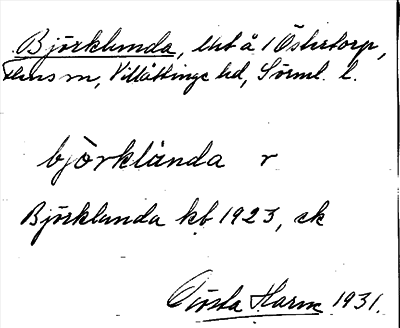 Björklunda, lht å 1 Östertorp,
Flens sn, Villåttinge hd, Sörml. l.
björklånda r
Björklunda kb 1923, ek
Gösta Harm 1931.